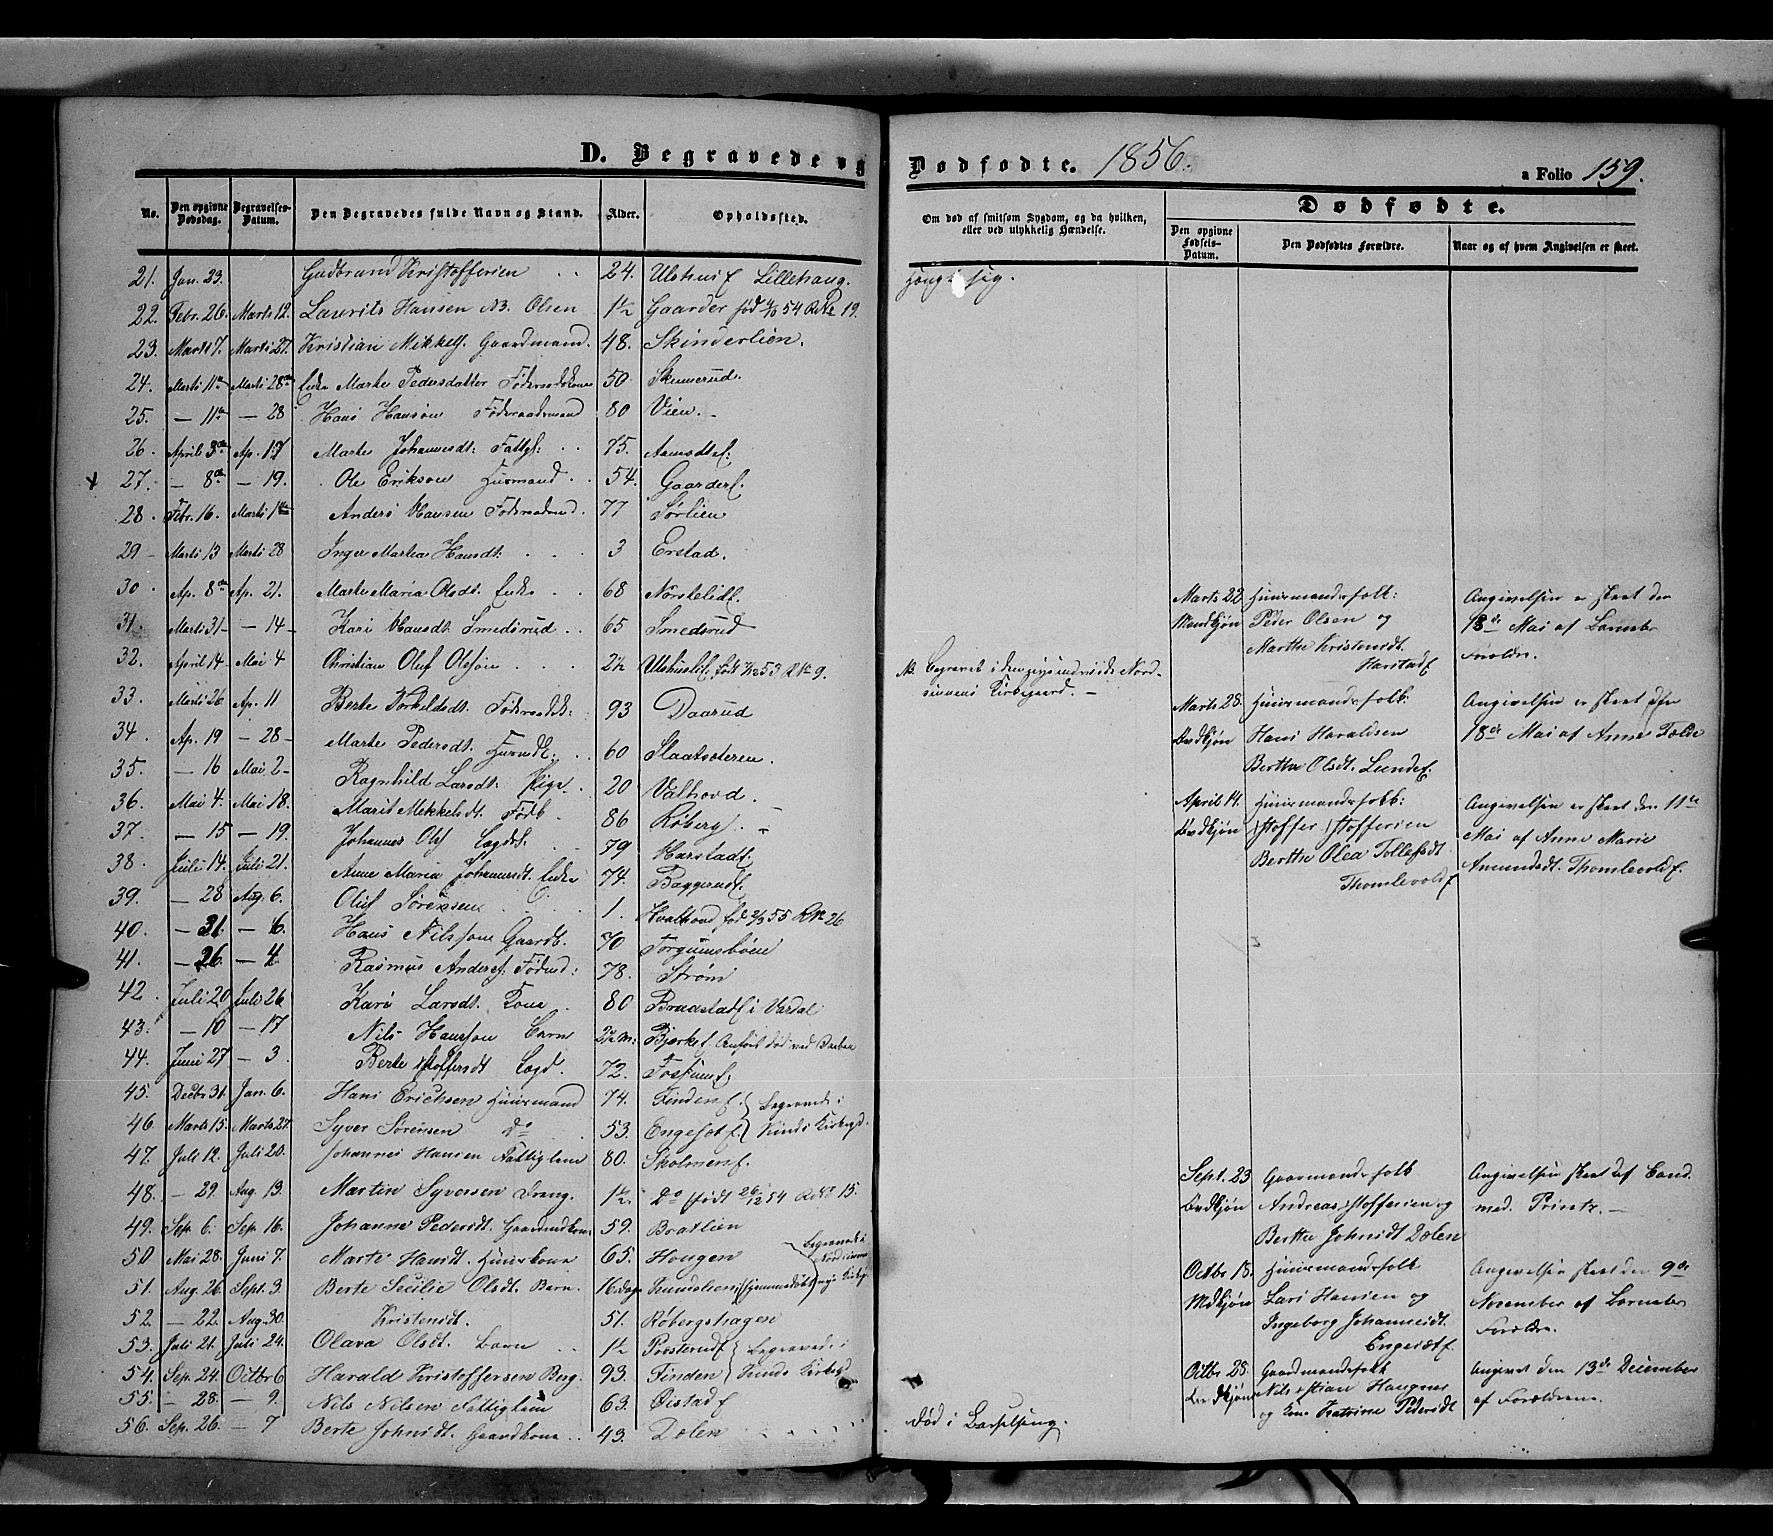 D. Begravede og Dødfødte. 1856.
a Folio 159.
No. Den opgivne Dødsdag. Begravelses-Datum. Den Begravedes fulde Navn og Stand. Alder. Opholdssted.
Om død af smitsom Sygdom, og da hvilken, eller ved ulykkelig Hændelse.
Dødfødte.
Den opgivne Fødsels-Datum. Den Dødfødtes Forældre. Naar og af hvem Angivelsen er skeet.
21. Jan. 23. Gudbrand Kristoffersen 24. Ulshusf Lillehaug. sig.
22. Febr. 26. Marts 12. Laurits Hansen Olsen 1½ Gaarder fød 54 19.
23. Marts 7. Marts 27. Kristian Mikkels. Gaardmand. 48. Skinderlien.
24. Marts 11te Marts 28de Enke Marte Pedersdatter Føderaadskone 50 Skinnerud.
25. — 11te — 28 Hans Hanson Føderaadsmand 80 Vien.
26. April 3de Ap. 17 Marte Johannesdt: Fattigl: 75.
27. — 8de — 19. Ole Erikson Husmand 54. Gaarderf.
28. Febr. 16. Marts 1ste Anders Hansen Føderaadmd. 77 Sørlien
29 Marts 13 Marts 28 Inger Martea Hansdt: 3 Erstad.
30. Ap. 8de Ap. 21. Marte Maria Olsdt. Enke 68 Norskelidf.
31. Marts 31 — 14 Kari Hansdt Smedsrud 65 Smedsrud
32. April 14 Mai 4 Christian Oluf Olsøn 2½ Ulshuslif. født 53 No 9. Nb. Begravet i den Nordsinnens Kirkegaard.
33. Marts 26 Ap. 11 Berte Torkeldsdt. Føderaadsk: 93 Daarud
34. Ap. 19 — 28 Marte Pedersdt. Husmdk: 60 Slaatsveteren.
35. — 16 Mai 2 Ragnhild Larsdt. Pige 20 Valhovd.
36. Mai 4. Mai 18. Marit Mikkelsdt. Fødk. 86 Røberg.
37. — 15 — 19. Johannes Ols Lægdsl. 79 Harstadf.
38. Juli 14. Juli 21. Anne Maria Johannesdt Enke 74. Baggerudf.
39. — 28 Aug. 6. Oluf Sørensen 1. Hvalhovd fød 55 No 26
40. — 31. — 6. Hans Nilsson Gaardb. 70 Torgunsbøen
41. — 26. — 4. Rasmus Andersf. Fødmd: 78. Strøm
42. Juli 20. Juli 26. Kari Larsdt. Kone 80 Braastadf i Vardal
43. — 10 — 17 Nils Hansson Barn Bjørkef død ved Daaben
44. Juni 27 — 3. Berte Stoffersdt Lægd. 72. Fossumf.
45. Decbr 31. Jan. 6. Hans Erichsen Huusmand 74. Findenf. Begravede i
46. Marts 15. Marts 27. Syver Sørensen do 53. Engesetf. Lunds Kirkegd.
47. Juli 12. Juli 20. Johannes Hansen Fattiglem 80. Skolmenf.
48. — 29. Aug. 13. Martin Syversen Dreng. 1½. Do født 26/12 54 No 15.
49. Sep. 6. Sep. 16. Johanne Pedersdt. Gaardmdkone 59. Bratlien
50 Mai 28. Juni 7. Marte Hansdt. Huuskone 65. Hougen Begravede i
51. Aug. 26. Sept. 3. Berte Secilie Olsdt. Barn. 16 dage Hjemmedøbt
52. — 22. Aug. 30. Kristensdt. 51. Røbergshagen
53. Juli 21. Juli 24. Olava Olsdt. Barn 1½ Prosterudf Begravede i
54. Sep. 24. Octbr 6 Harald Kristoffersen Brug. 93. Finden Lunds Kirkeg.
55. — 28. — 9. Nils Nilsen Fattiglem 63. Øistadf
56. Sep. 26. — 7 Berte Johnsdt. Gaardkone 43. Dølen død i Barselseng.
Marts 22 Huusmandsfolk: Angivelsen er skeet den
Mandkjøn Peder Olsen og 18de Mai af Barnets
Marthe Kristensdt. Forældre.
Harstadf
Marts 28. Huusmandsfolk: Angivelsen er skeet den
Qvdkjøn Hans Haraldsen 18de Mai af Anne Følde
Berthe Olsdt. Lundef.
April 14. Huusmandsfolk: Angivelsen er skeet den 11te
Qvdkjøn Stoffer Stoffersen Mai af Anne Marie
Berthe Olea Tollefsdt Amundsdt. Thomlevoldf.
Thomlevoldf
Sept. 23 Gaardmandsfolk Angivelsen skeet af Cand.
Qvdkjøn Andreas Stoffersen og med. Printz.
Berthe Johnsdt Dølen
Octbr 18. Huusmandsfolk Angivelsen skeet den 9de
Mdkjøn Lars Hansen og November af Barnets
Ingeborg Johannesdt. Forældre.
Engesætf.
Octbr 28. Gaardmandsfolk Angivet den 13de December
Qvdkjøn Nils Stian Haugner af Forældrene.
og Kone Katrine Pedersdt